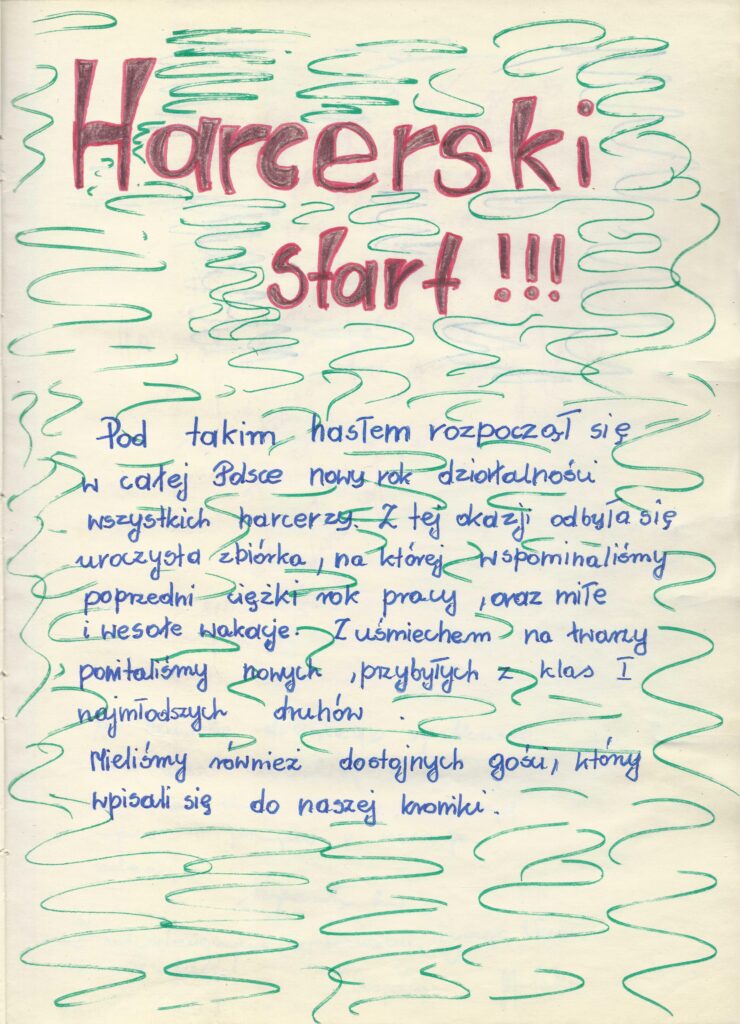 Harcerski
start !!!
Pod takim hasłem rozpoczął się
w całej Polsce nowy rok działalności
wszystkich harcerzy. Z tej okazji odbyła się
uroczysta zbiórka, na której wspominaliśmy
poprzedni ciężki rok pracy, oraz miłe
i wesołe wakacje. Z uśmiechem na twarzy
powitaliśmy nowych, przybyłych z klas I
najmłodszych druhów.
Mieliśmy również dostojnych gości, który
wpisali się do naszej kroniki.